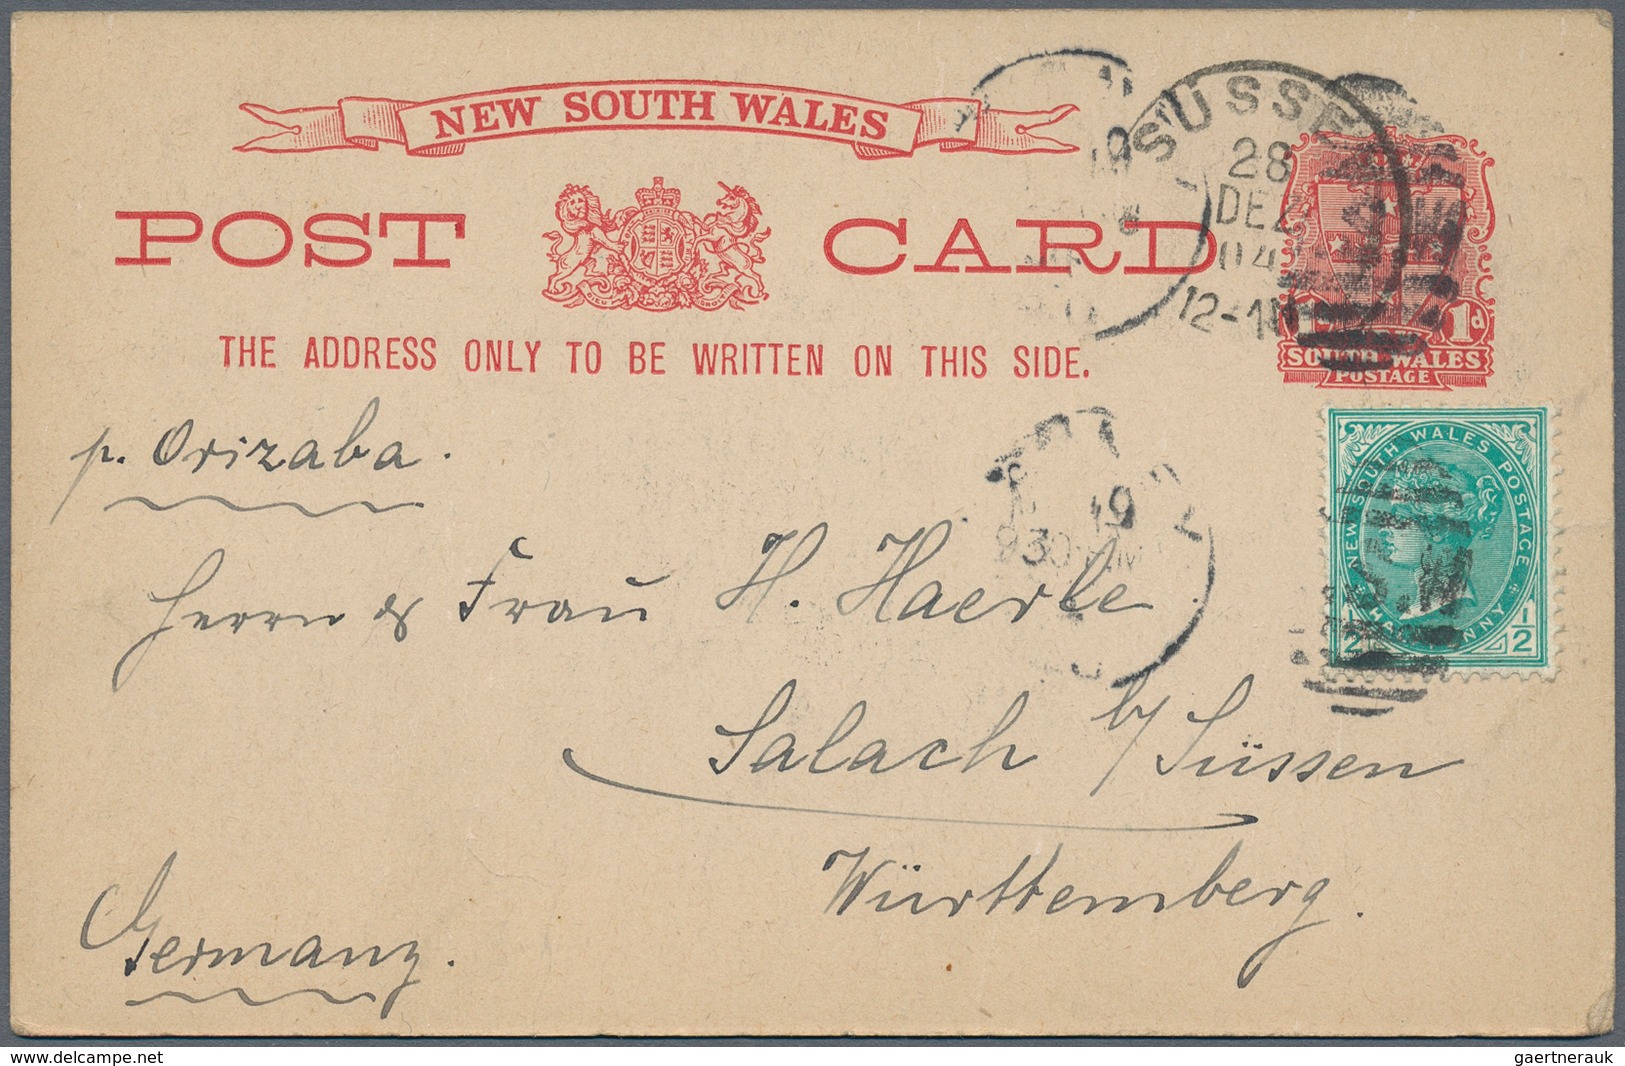 NEW SOUTH WALES
POST CARD
THE ADDRESS ONLY TO BE WRITTEN ON THIS SIDE.
SÜSSE
28
DEZ
04
12-1
1d
SOUTH WALES
POSTAGE
p. Orizaba.
19
930
NEW SOUTH WALES POSTAGE
HALFPENNY
1/2
1/2
Herrn & Frau H. Haerle.
Salach b/Süssen
Württemberg.
Germany.
delcampe.net
gaertnerauk